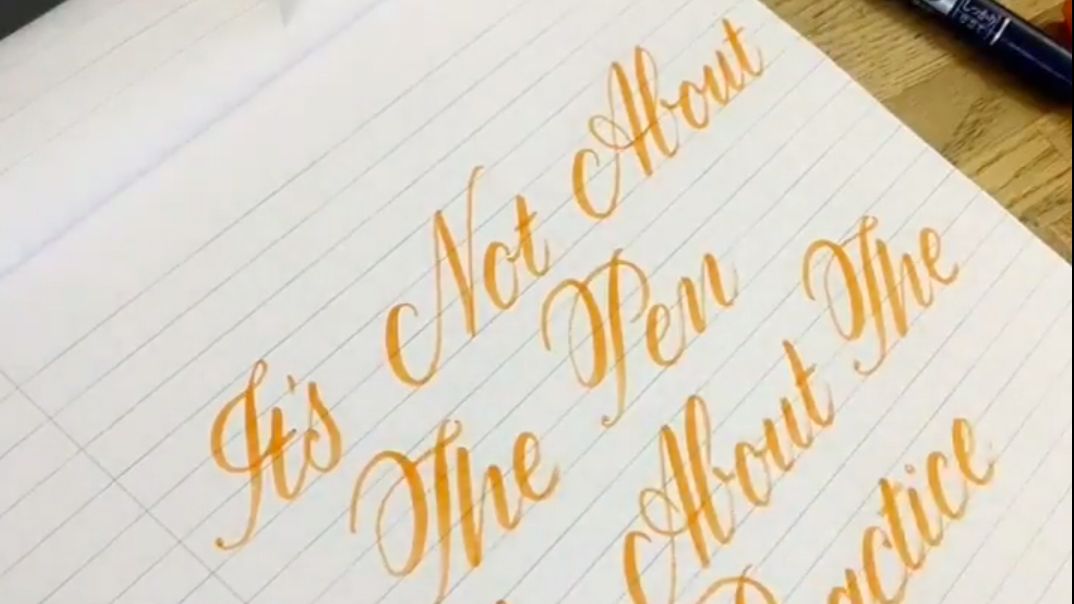 It's Not About
The Pen
About The
Practice
しっかり